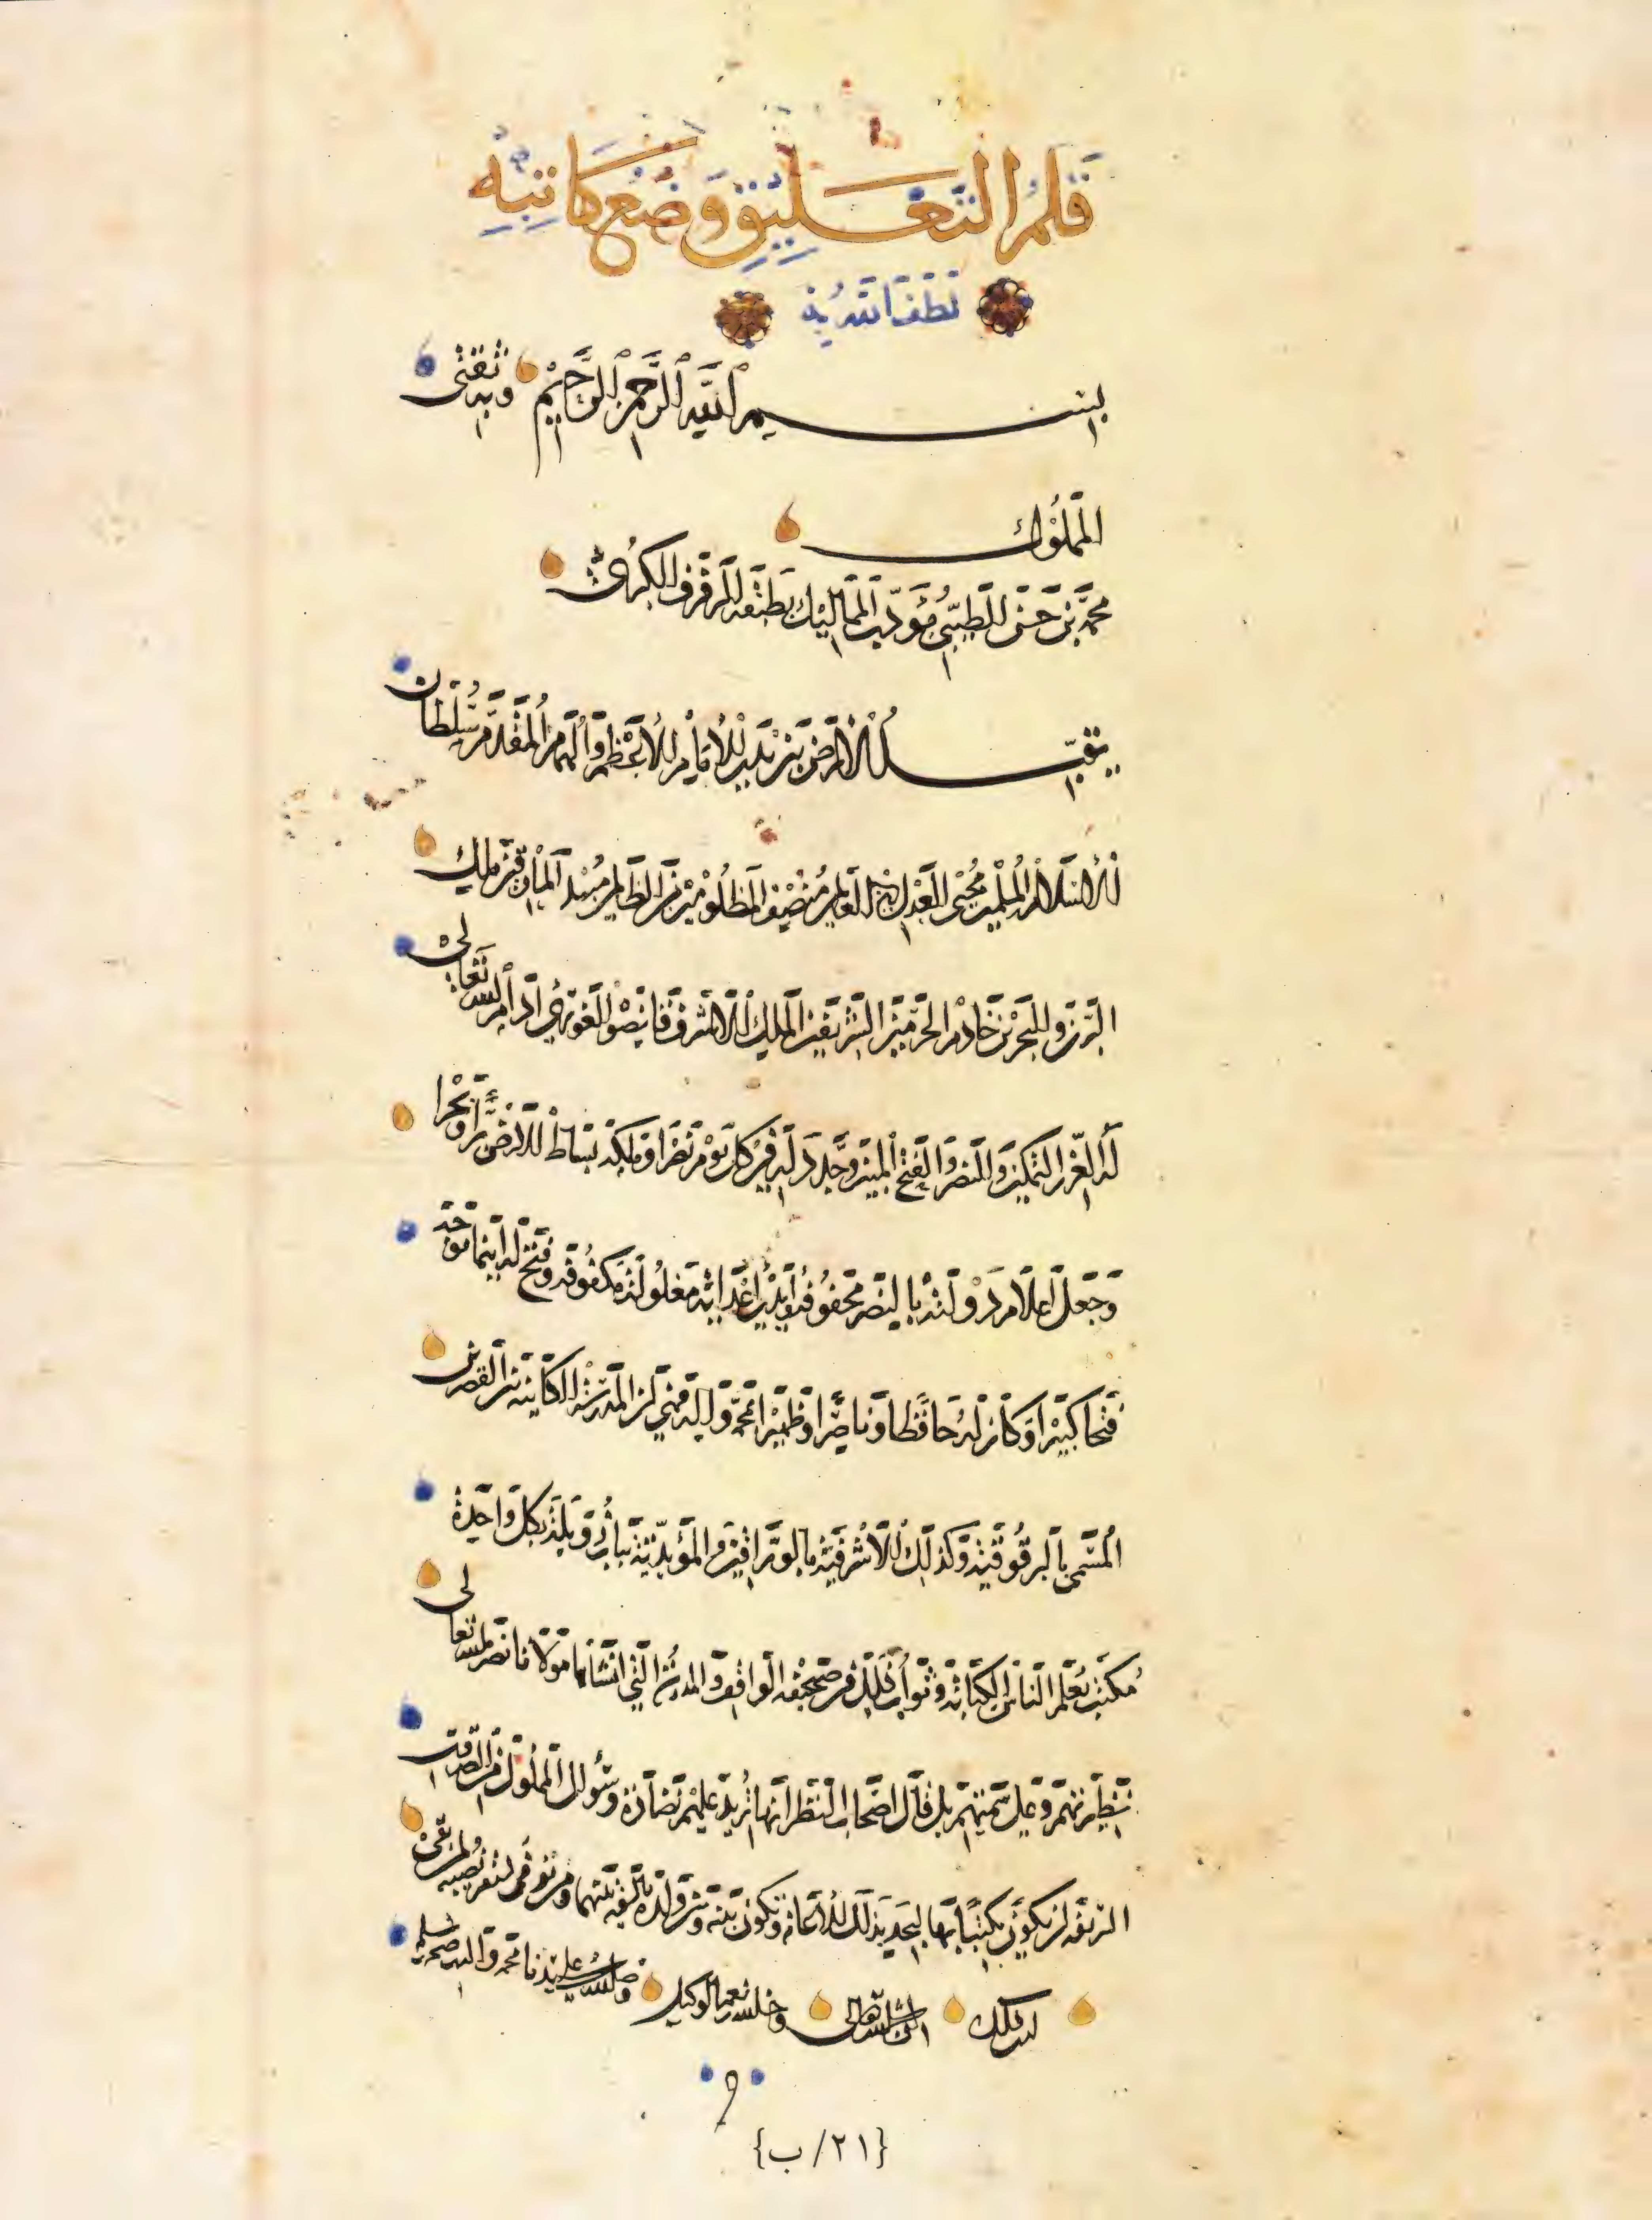 قَلَمُ التَّعْلِيقِ وَضْعُ كَاتِبِهِ
لَطَفَ اللهُ بِهِ
بسم الله الرحمن الرحيم وبه ثقتي
المملوك
محمد بن حسن الطيبي مؤدب المماليك بطبقة الرفرف الكبرى
يقبل الأرض بين يدي الإمام الأعظم والهمام المقدم سلطان
الإسلام والمسلمين محيي العدل في العالمين منصف المظلومين من الظالمين مبيد المارقين ملك
البرين والبحرين خادم الحرمين الشريفين الملك الأشرف قانصوه الغوري أدام الله تعالى
له العز والتمكين والنصر والفتح المبين وجدد له في كل يوم نصرا وملكه بساط الأرض برا وبحرا
وجعل أعلام دولته بالنصر محفوفة وأيدي أعدائه مغلولة مكفوفة وفتح له أينما توجه
فتحا كبيرا وكان له حافظا وناصرا وظهيرا بمحمد وآله المدرسة الكائنة بين القصرين
المسمى بالبرقوقية وكذلك الأشرفية بالوراقين والمؤيدية بباب زويلة بكل واحدة
مكتب يعلم الناس الكتابة وثواب ذلك في صحيفة الواقف والمدرسة التي أنشأها مولانا نصره الله تعالى
نظيرتهم وعلى سمتهم بل قال أصحاب النظر أنها تزيد عليهم نضارة وسؤال المملوك من الصدقات
الشريفة أن يكون مكتبا بها ليجد بذلك الإعانة
له ذلك إن شاء الله تعالى وحسبنا الله ونعم الوكيل وصلى الله على سيدنا محمد وآله وصحبه وسلم
{٢١/ب}